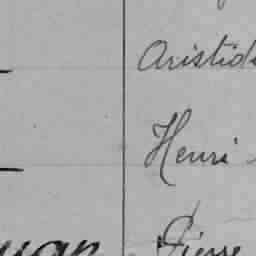 Aristid
Henri
Pierre